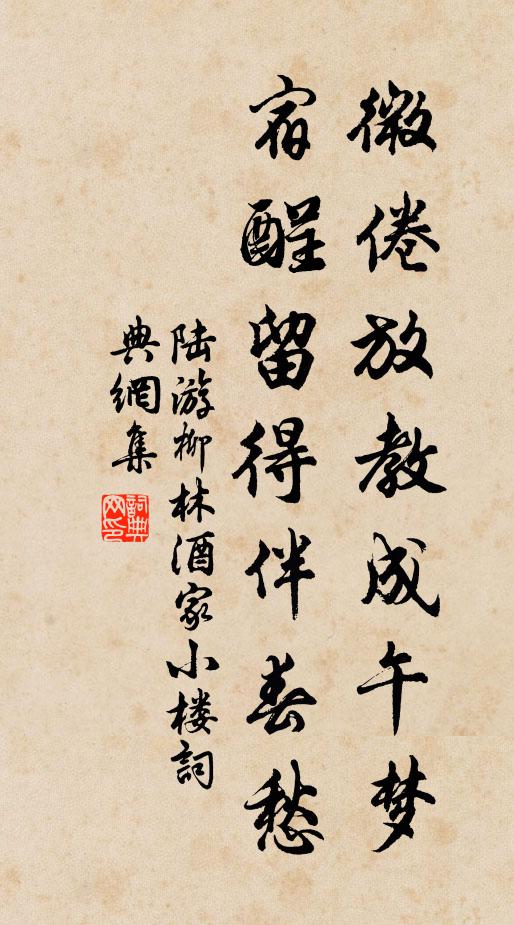 微倦放教成午梦
宿酲留得伴春愁
陆游柳林酒家小楼詞
典網集
詞典
网印